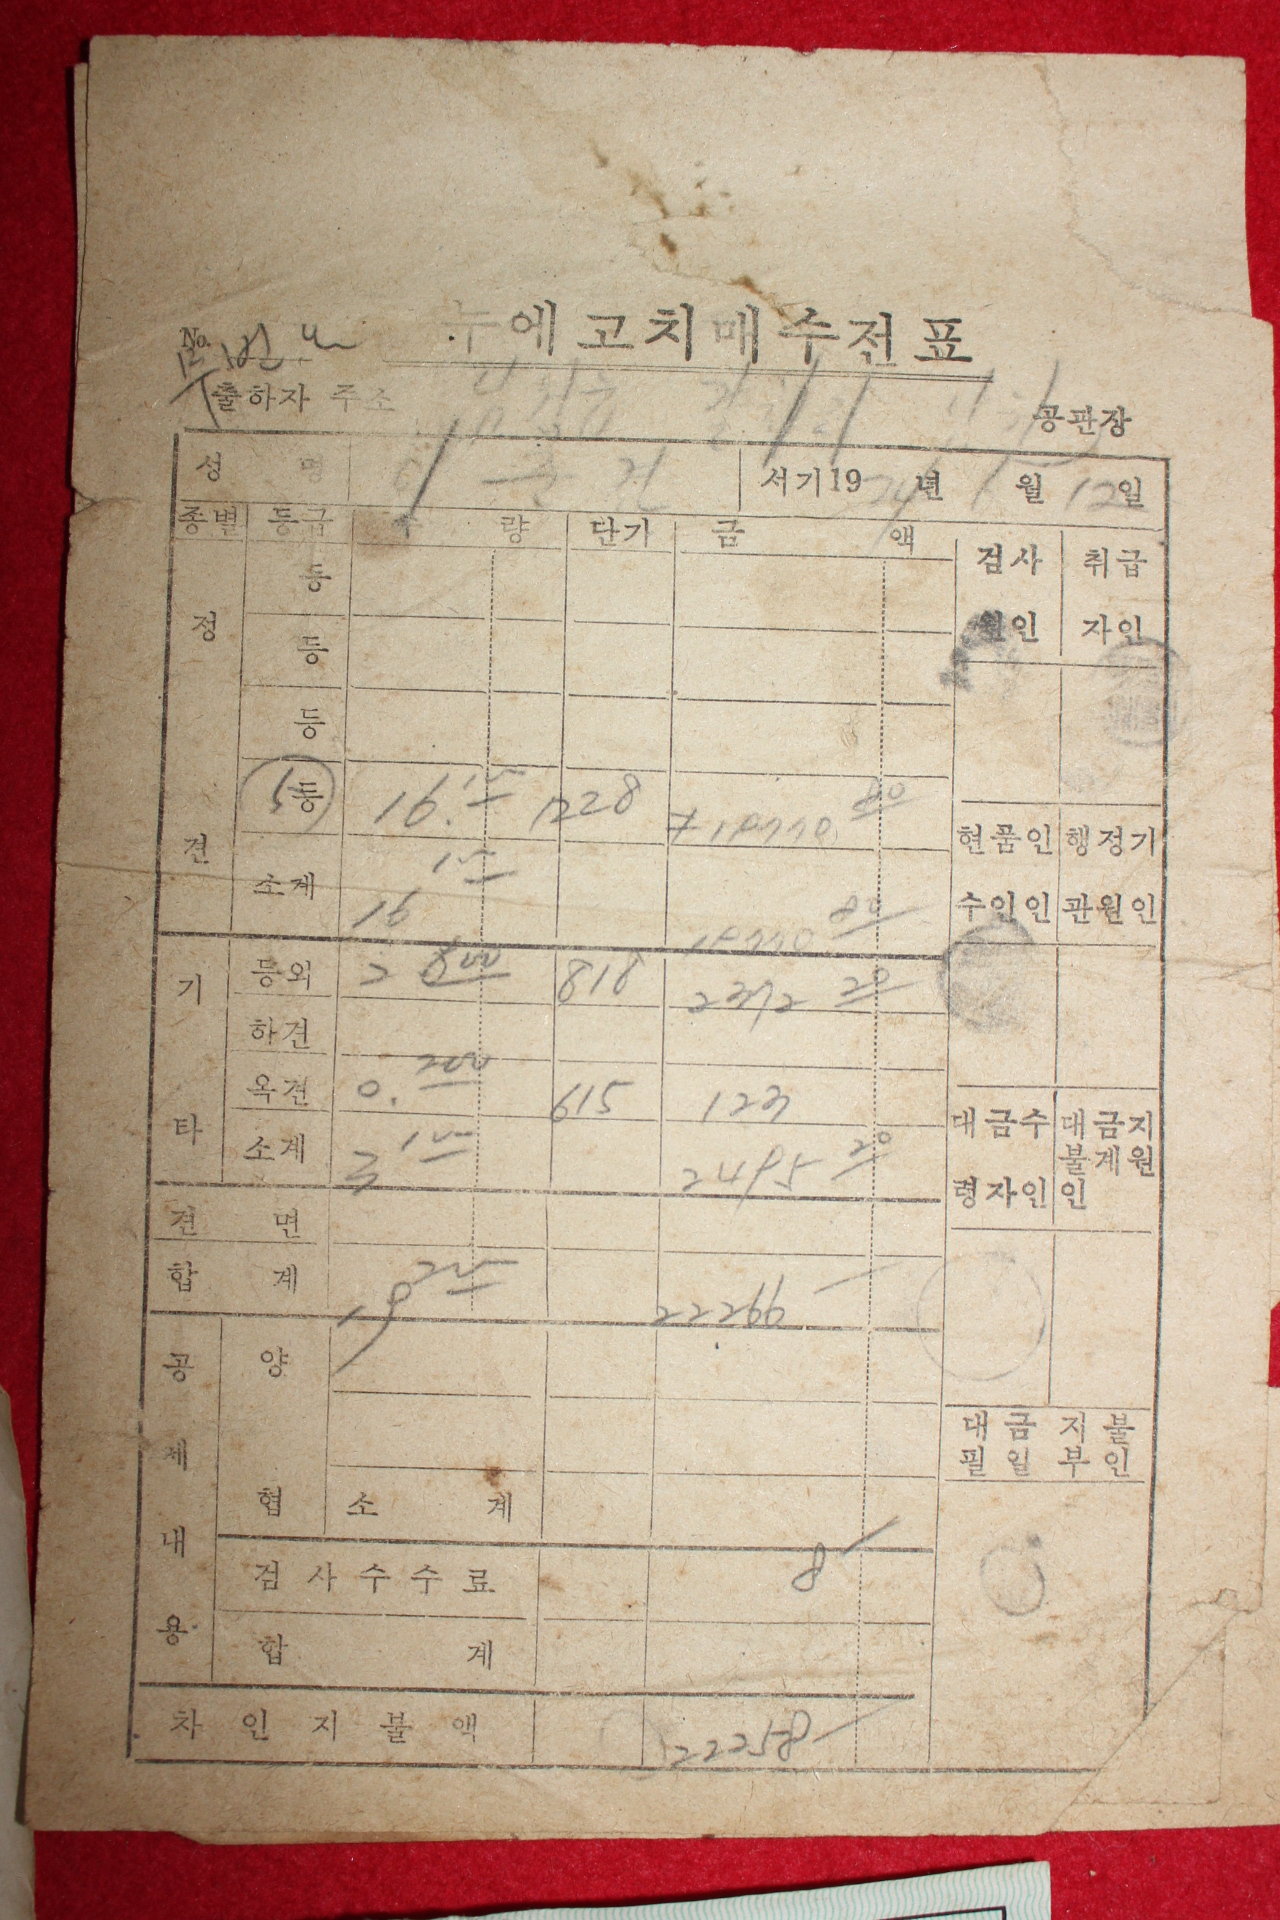 No.
누에고치매수전표
출하자 주소
공판장
성 명 서기19 74 년 월 12일
종별 등급 수 량 단기 금 액
검사원인 취급자인
정견
등
등
등
5등 16.100 1228 80
소계 16 100 80
현품인수인인 행정기관원인
기타
등외 2 800 818 2372 20
하견
옥견 0.200 615 123
소계 3 100 2495 20
대금수령자인 대금지불계원인
견 면
합 계 19 200 22266
공세내용
양협
대금지불필일부인
소 계
검사수수료 8
합 계
차인지불액 22258